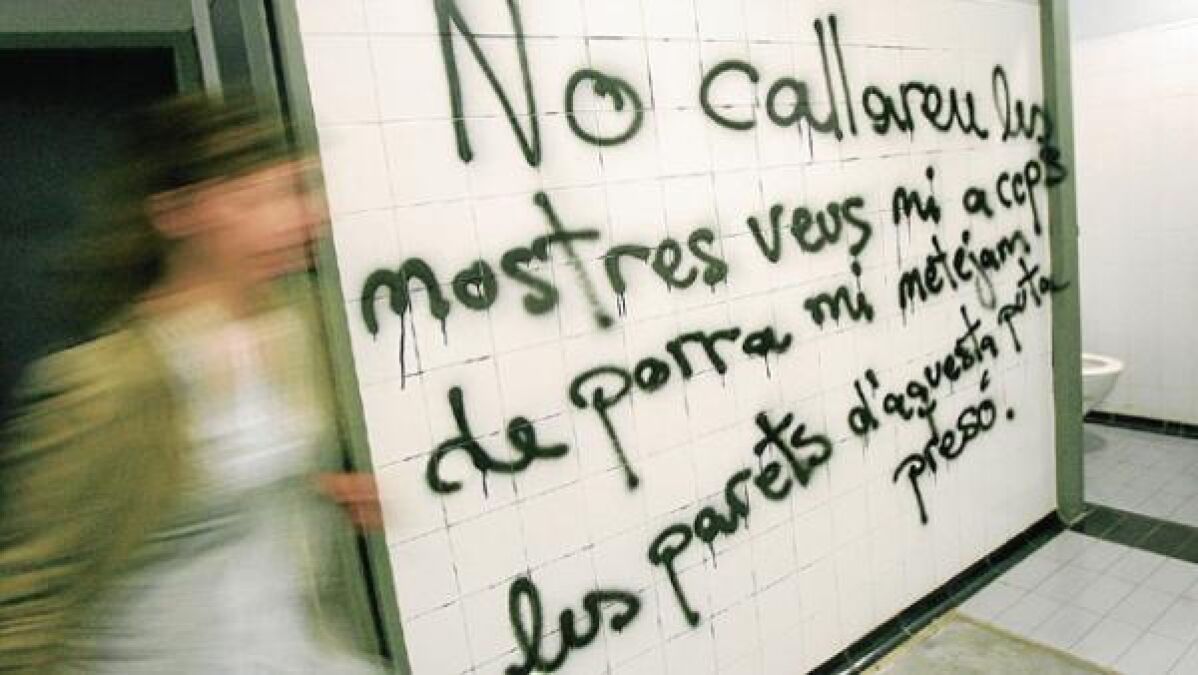 No callareu les
nostres veus ni a cops
de porra ni metejam
les parets d'aquesta puta
presó.